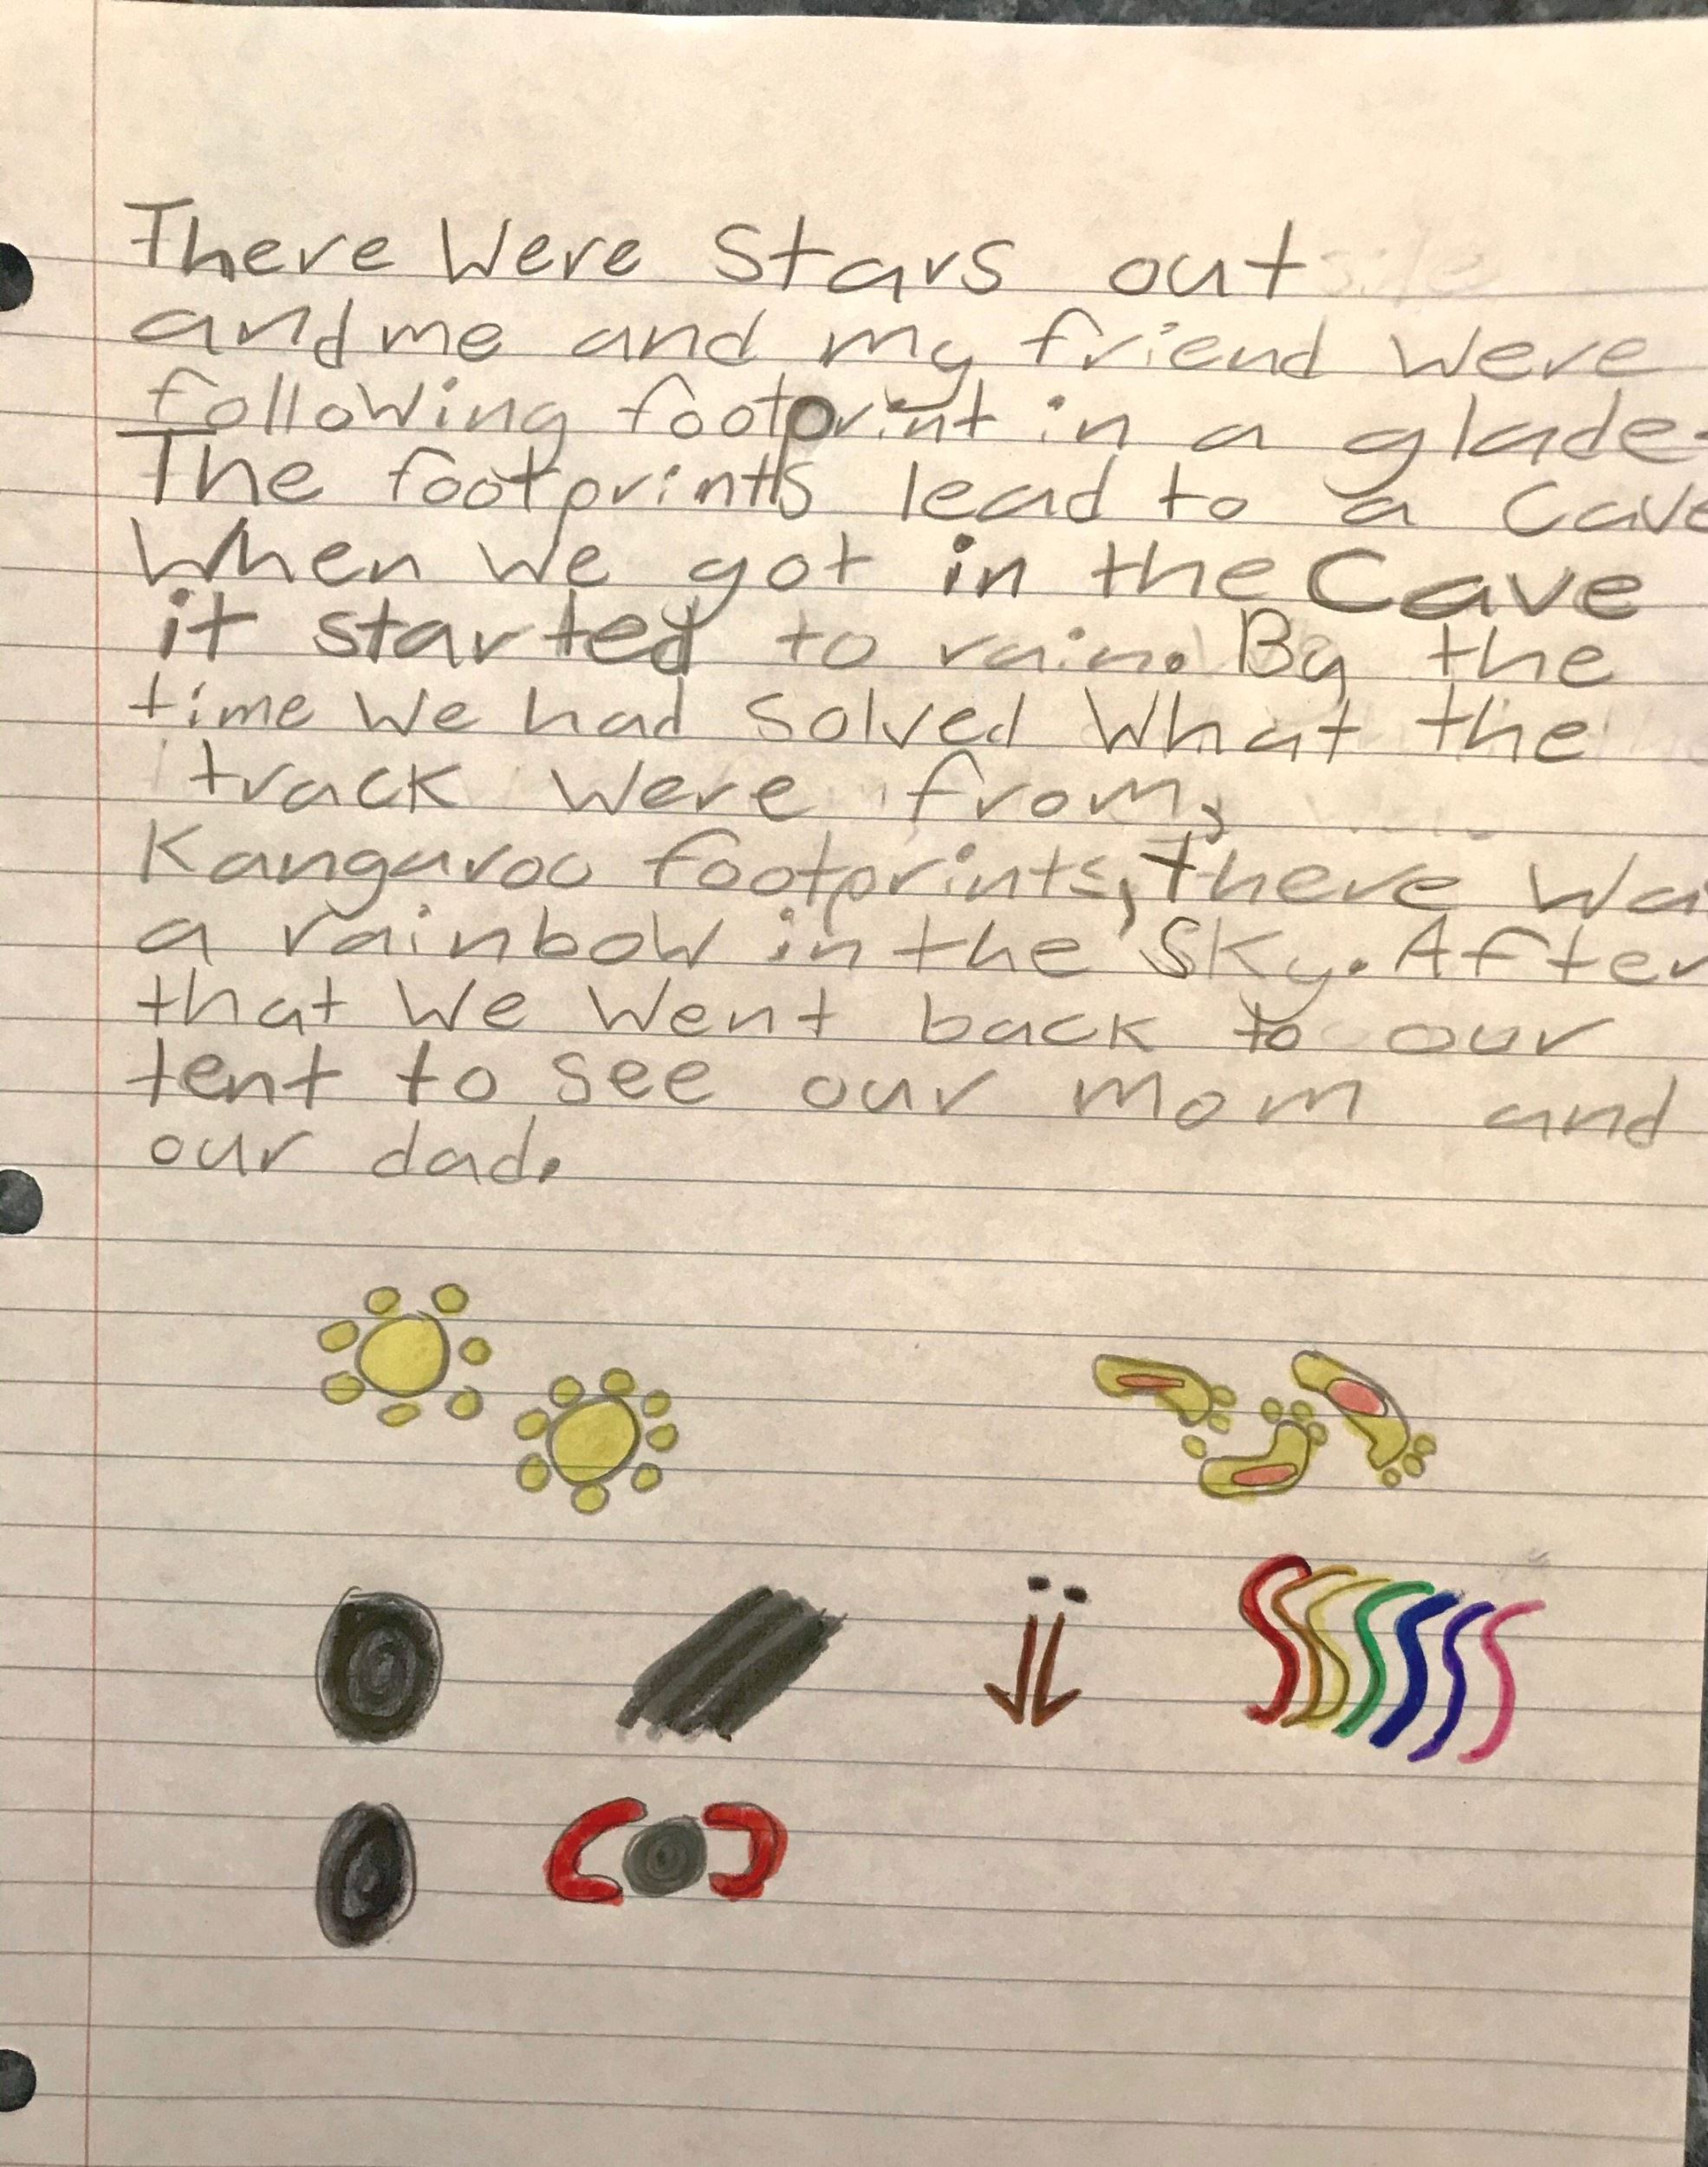 There Were Stars out
and me and my friend Were
following footprint in a glade.
The footprints lead to a Cave
When We got in the Cave
it started to rain. By the
time We had Solved What the
track Were from,
Kanguroo footprints, there Wa
a rainbow in the Sky. After
that We Went back to our
tent to see our mom and
our dad.